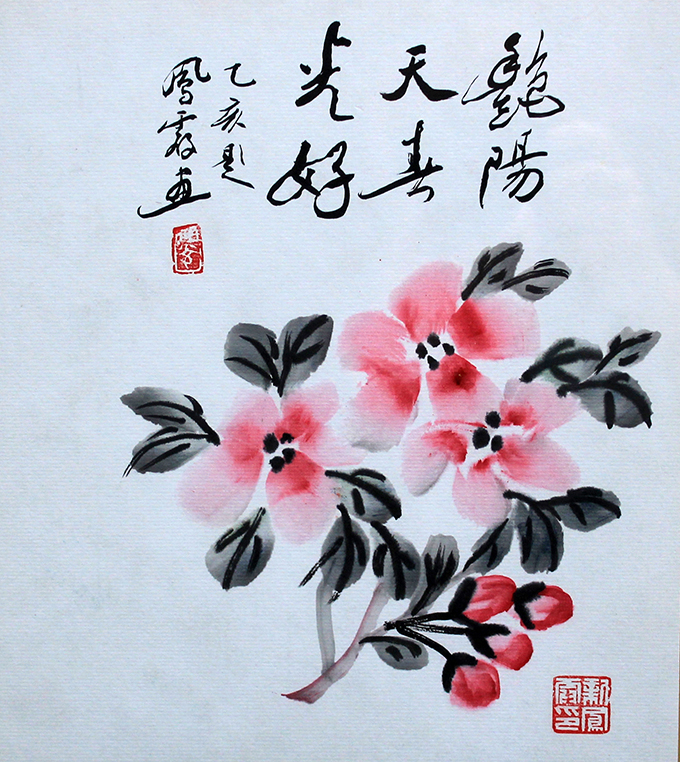 艷陽
天春
光好
乙亥題
鳳霞畫
新鳳
霞印